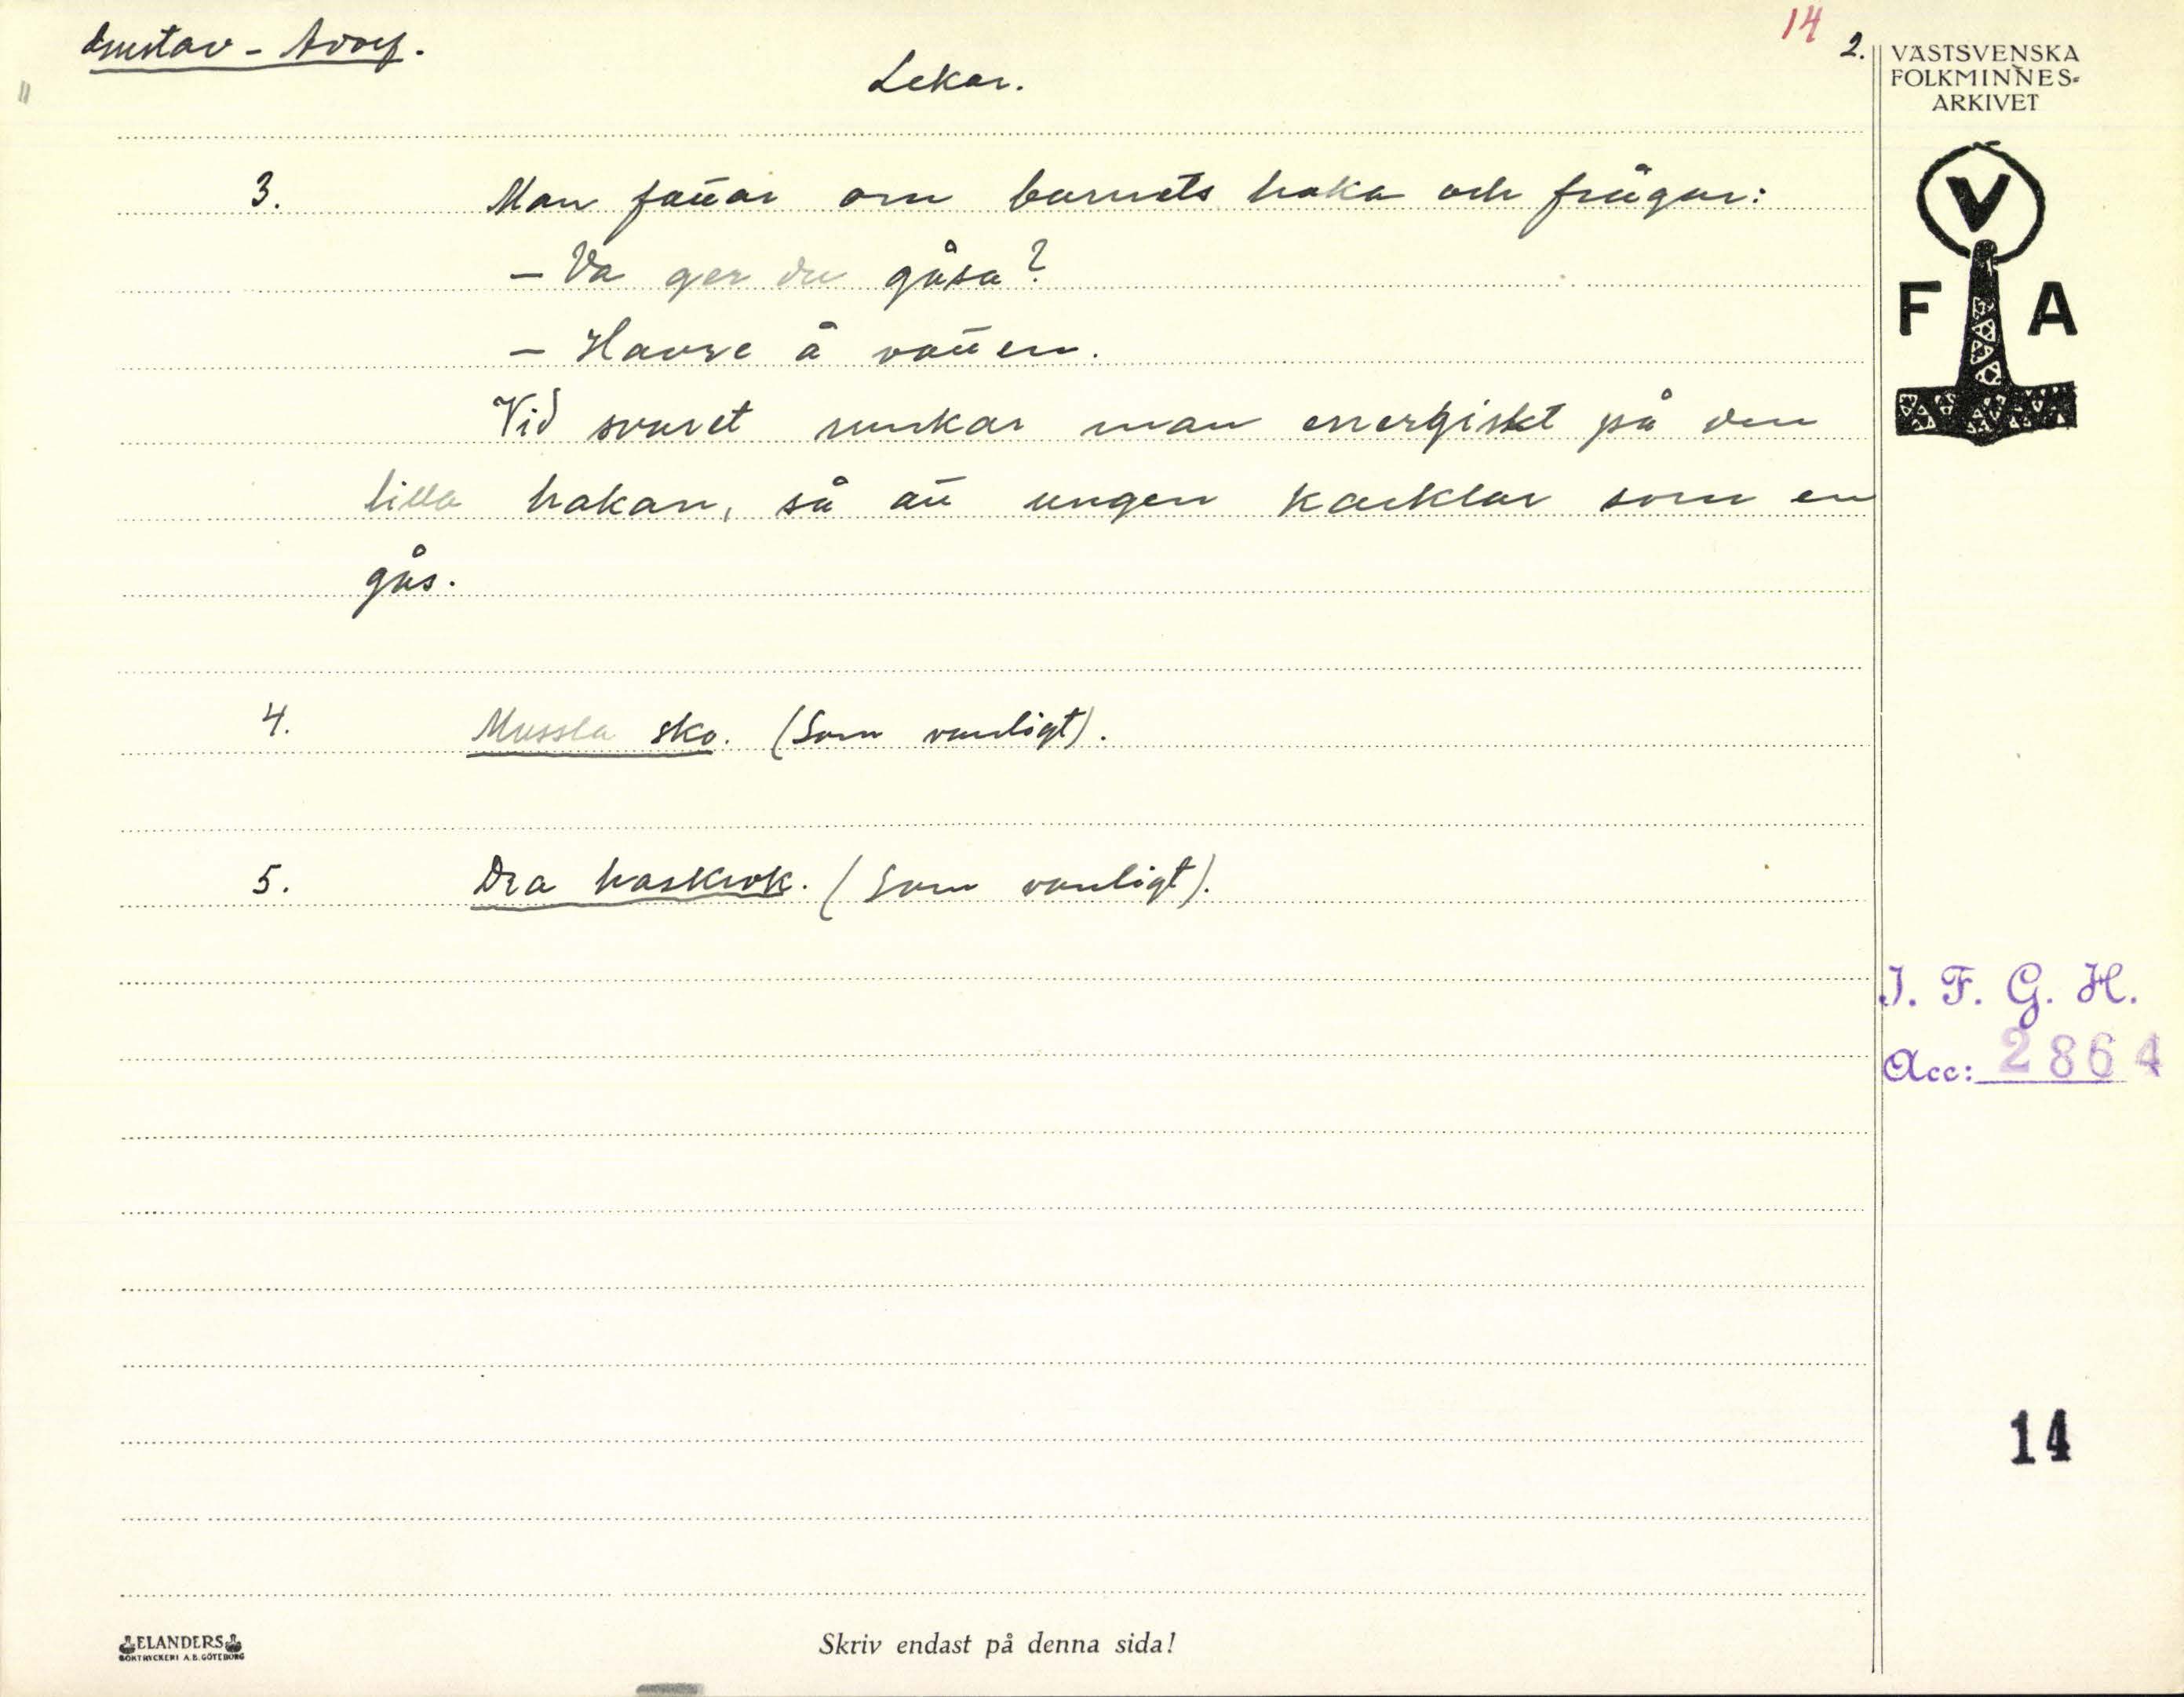 Gustav-Adolf.
14
2.
Lekar.
VÄSTSVENSKA
FOLKMINNES-
ARKIVET
V
F A
3. Man fattar om barnets haka och frågar:
– Va ger du gåsa?
– Havre å vatten.
Vid svaret runkar man energiskt på den
lilla hakan, så att ungen kacklar som en
gås.
4. Mussla sko. (Som vanligt).
5. Dra haskrok. (Som vanligt).
I. F. G. H.
Acc: 2864
14
ELANDERS
BOKTRYCKERI A.B. GÖTEBORG
Skriv endast på denna sida!